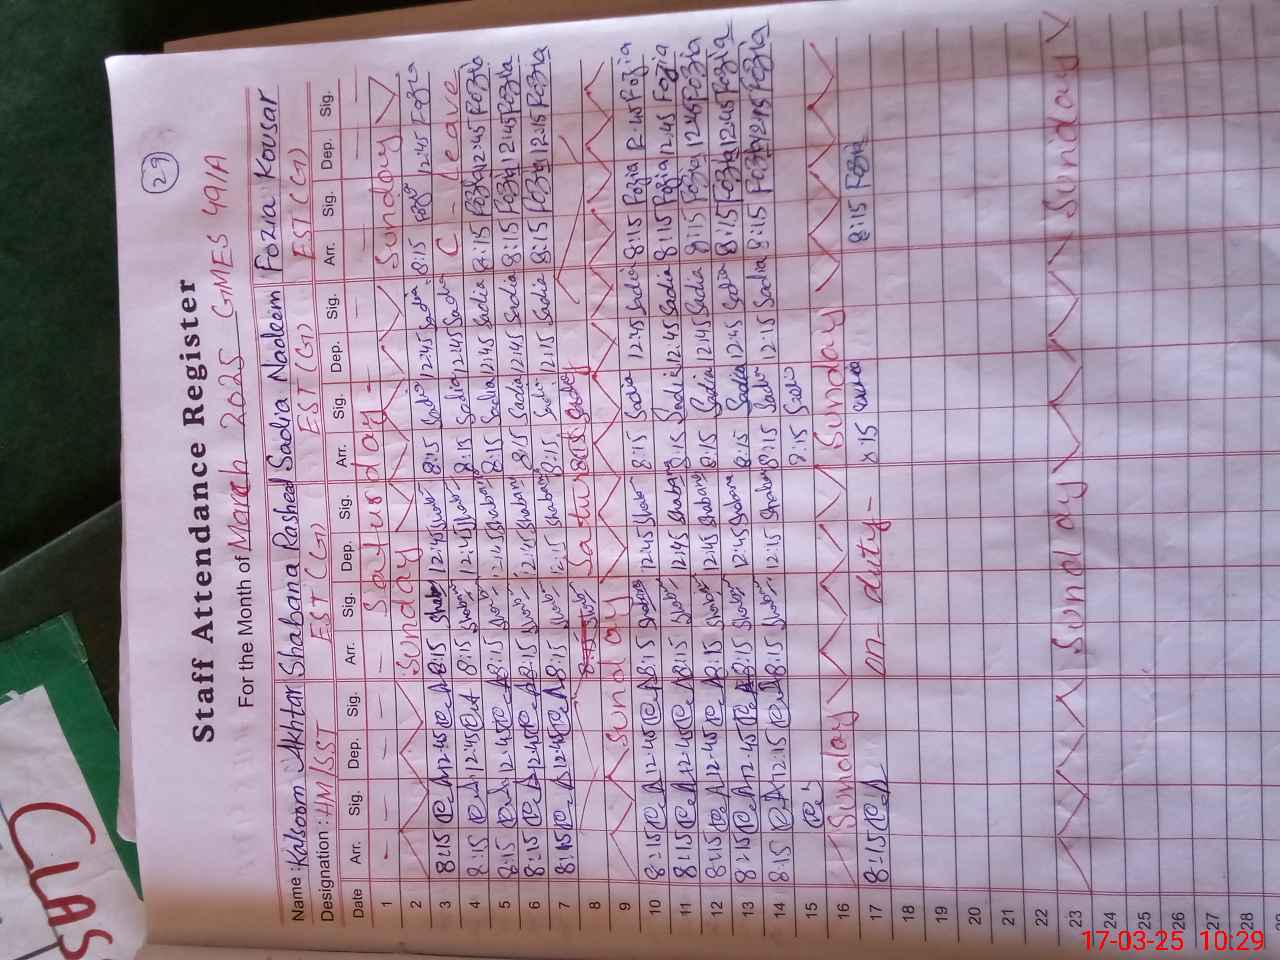 29
Staff Attendance Register
For the Month of March 2025 GMES 49/A
Name: Kalsoom Akhtar Shabana Rasheed Sadia Nadeem Fozia Kousar
Designation: HM/SST EST (G) EST (G) EST (G)
Date Arr. Sig. Dep. Sig. Arr. Sig. Dep. Sig. Arr. Sig. Dep. Sig. Arr. Sig. Dep. Sig.
1 - - - - - Saturday - Sunday
2 Sunday 8:15 12:45 Fozia
3 8:15 12:45 8:15 12:45 8:15 Sadia 12:45 Sadia C - leave
4 8:15 12:45 8:15 Shabana 12:45 8:15 Sadia 12:45 Sadia 8:15 Fozia 12:45 Fozia
5 8:15 12:45 8:15 12:45 Shabana 8:15 Sadia 12:45 Sadia 8:15 Fozia 12:45 Fozia
6 8:15 12:45 8:15 12:45 Shabana 8:15 Sadia 12:45 Sadia 8:15 Fozia 12:15 Fozia
7 8:15 12:45 8:15 12:15 Shabana 8:15 Sadia 12:15 Sadia
8 8:15 Saturday
9 Sunday
10 8:15 12:45 8:15 Shabana 12:45 8:15 Sadia 12:45 Sadia 8:15 Fozia 12:45 Fozia
11 8:15 12:45 8:15 12:45 Shabana 8:15 Sadia 12:45 Sadia 8:15 Fozia 12:45 Fozia
12 8:15 12:45 8:15 12:45 Shabana 8:15 Sadia 12:45 Sadia 8:15 Fozia 12:45 Fozia
13 8:15 12:45 8:15 12:45 Shabana 8:15 Sadia 12:45 Sadia 8:15 Fozia 12:45 Fozia
14 8:15 12:15 8:15 12:15 Shabana 8:15 Sadia 12:15 Sadia 8:15 Fozia 12:15 Fozia
15 8:15 Sadia
16 Sunday Sunday
17 8:15 on - duty - 8:15 Fozia
18
19
20
21
22
23 Sunday Sunday
24
25
26
27
28
CLAS
17-03-25 10:29